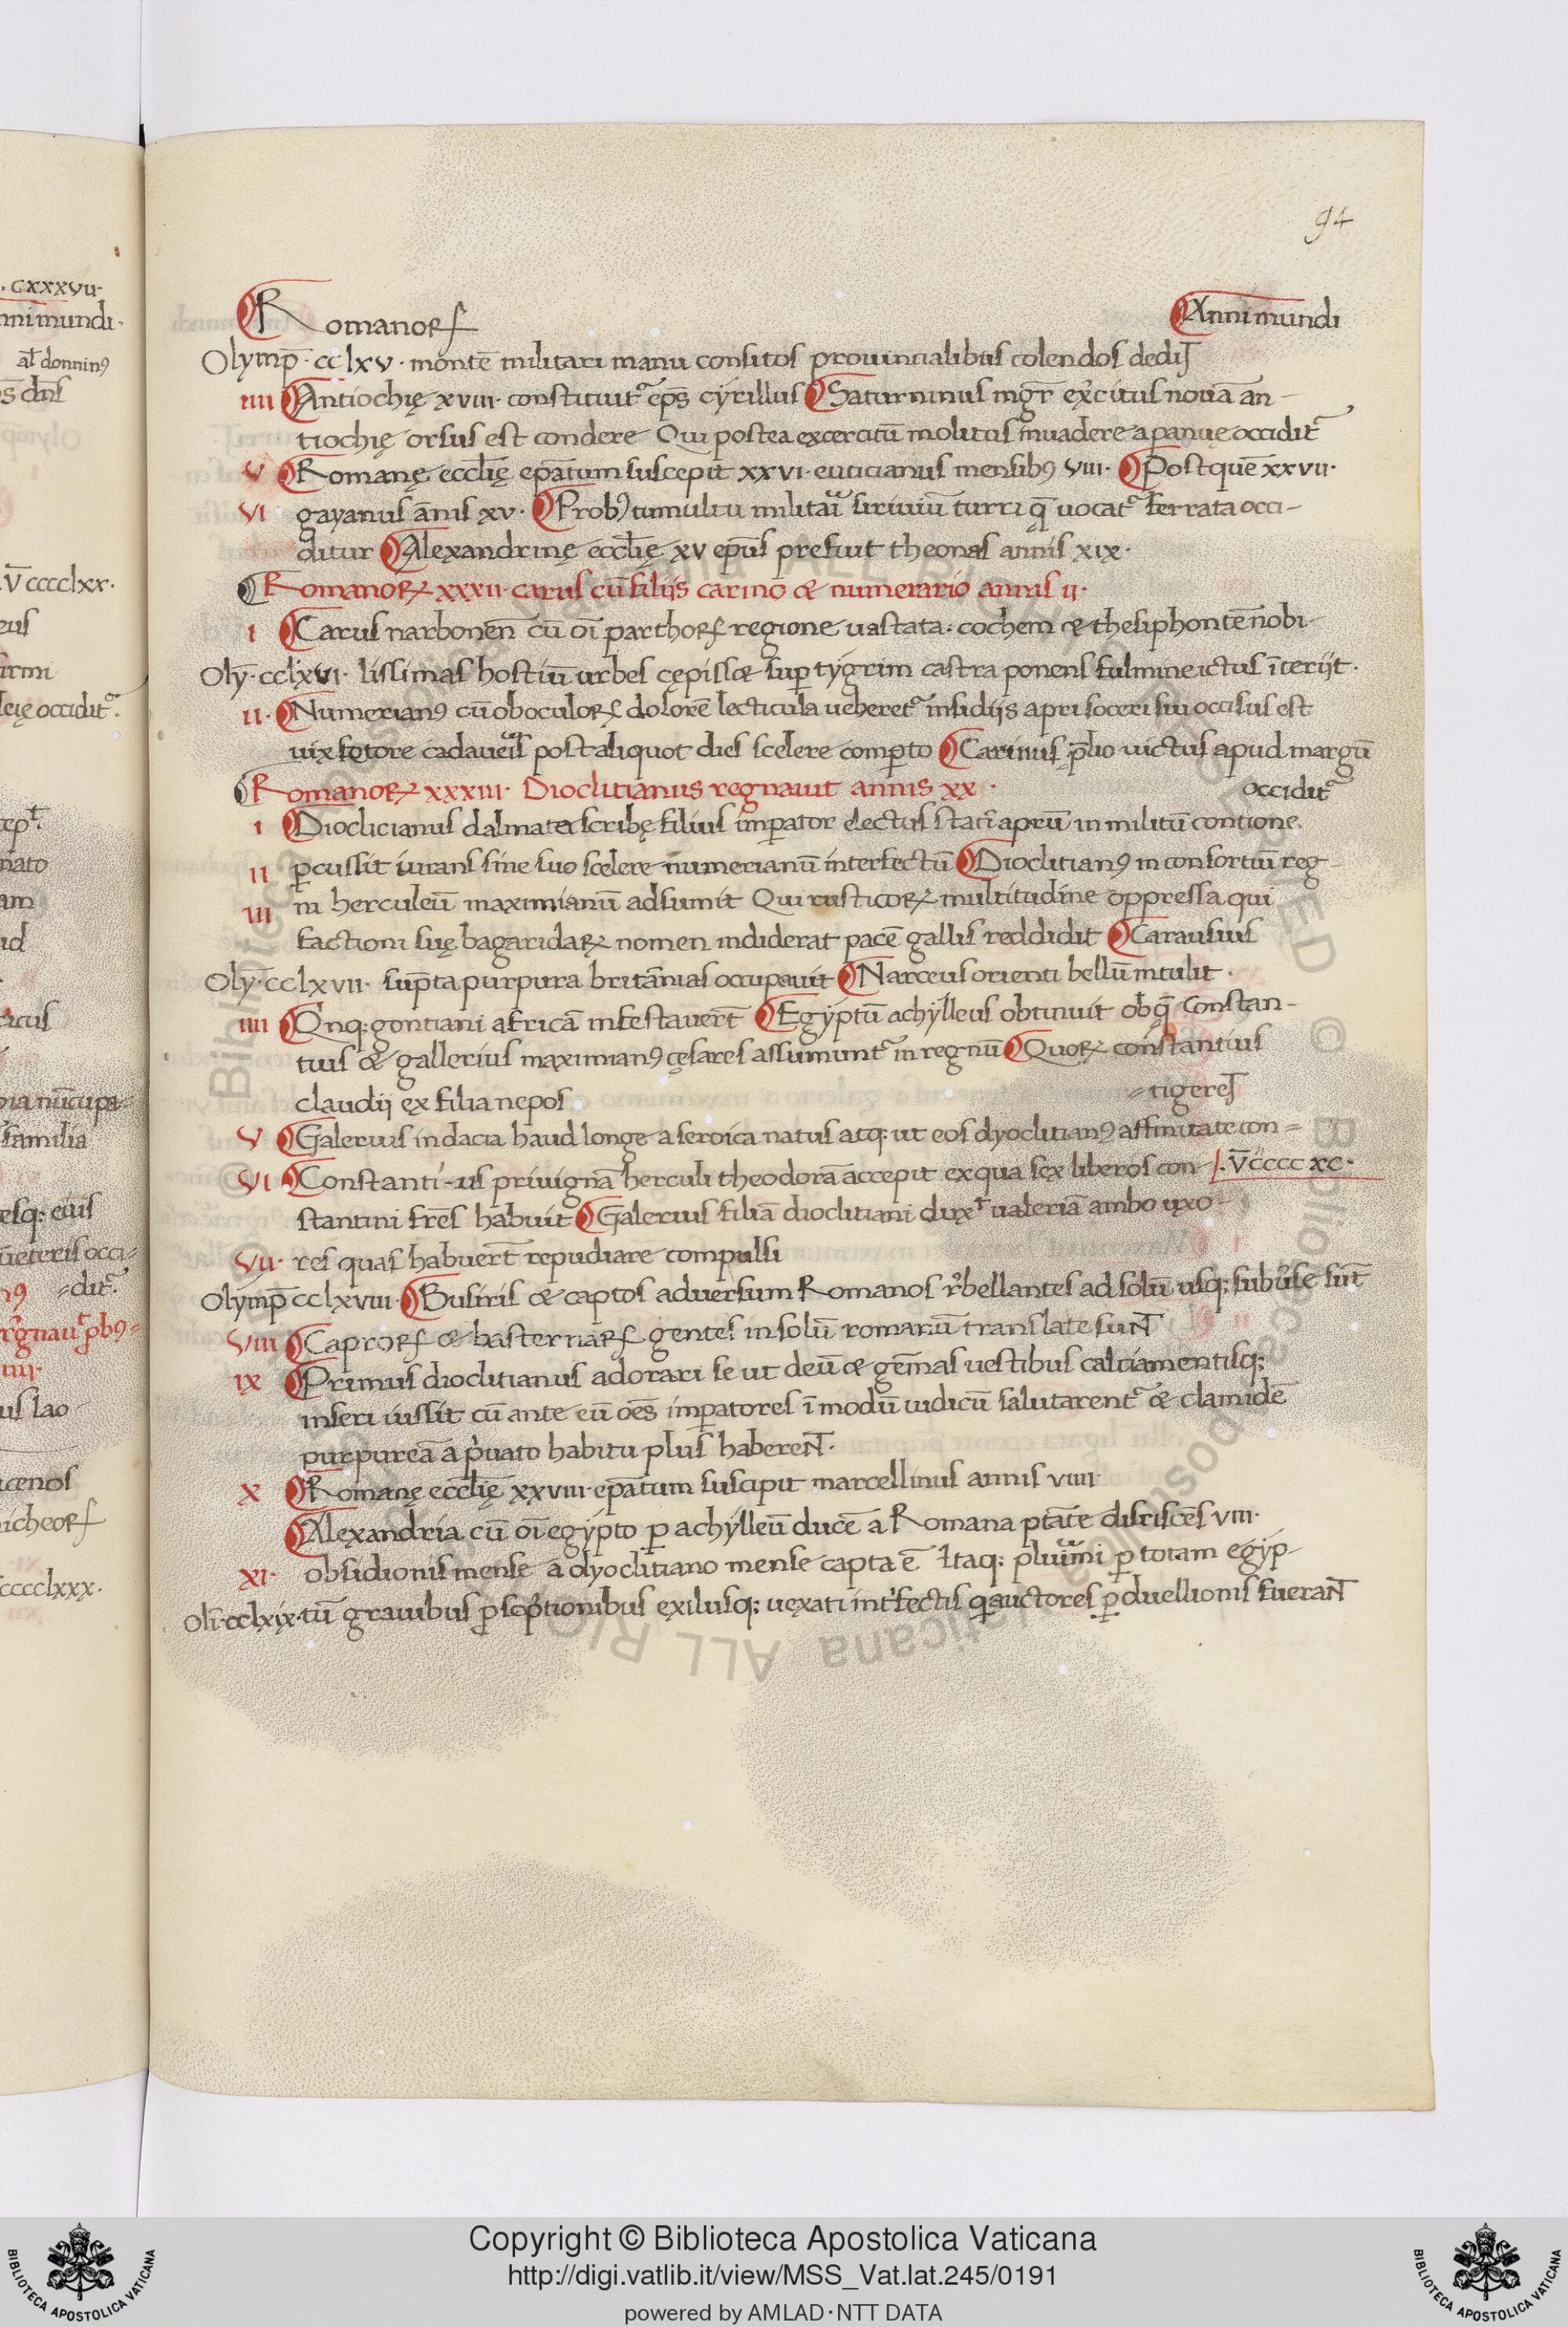 94
Romanoꝝ Anni mundi
Olymp̄ · cclxv · montē militari manu consitos prouincialibus colendos dediſ
IIII Antiochię xviii · constituit᷑ ep̄s cyrillus Saturninus mgr̄ ex̓citus nouā an-
tiochię orsus est condere Qui postea excercitū molitus inuadere apamię occidit᷑
V Romanę ecc̄lię ep̄atum suscepit xxvi · euticianus mensibꝰ viii · Post quē xxvii ·
VI gayanus ānis xv · Probꝰ tumultu militari sirmiū turri q̄ uocat᷑ ferrata occi-
ditur Alexandrinę ecc̄lię xv ep̄us prefuit theonas annis xix ·
Romanoꝝ xxxii · carus cū filiis carino & numerario annis ii ·
I Carus narbonen̄ cū oī parthoꝝ regione uastata · cochem & thesiphontē nobi-
Olȳ · cclxvi · lissimas hostiū urbes cępissꝫ suꝑ tygrim castra ponens fulmine ictus īterijt ·
II · Numerianꝰ cū ob oculoꝝ dolorē lecticula ueheret᷑ insidijs apri soceri sui occisus est
uix fetore cadaueris post aliquot dies scelere comꝑto Carinus p̄lio uictus apud margū
Romanoꝝ xxxiii · Dioclitianus regnauit annis xx · occidit᷑
I Dioclicianus dalmata scribę filius imꝑator electus statī aprū in militū contione
II ꝑcussit iurans sine suo scelere numerianū interfectū Dioclitianꝰ in consortiū reg-
III ni herculeū maximianū adsumit Qui rusticoꝝ multitudine oppressa qui
factioni suę bagaridaꝝ nomen indiderat pacē gallis reddidit Carausius
Olȳ · cclxvii · sup̄ta purpura britānias occupauit Narceus orienti bellū intulit ·
IIII Qnqꝫ gontiani africā infestauer̄t Egyptū achylleus obtinuit ob q̄ constan-
tius & gallerius maximianꝰ cęsares assumunt᷑ in regnū Quoꝝ constantius
claudij ex filia nepos =tigereſ
V Galerius in dacia haud longe a seroica natus atqꝫ ut eos dyoclitianꝰ affinitate con=
VI Constanti-us priuignā herculi theodorā accepit ex qua sex liberos con- · V̄ cccc xc ·
stantini fr̄es habuit Galerius filiā dioclitiani dux̄ ualeriā ambo uxo-
VII · res quas habuer̄t repudiare compulsi
Olymp̄ cclxviii · Busiris & captos aduersum Romanos r̓bellantes ad solū usqꝫ subu̓se sūt
VIII Caproꝝ & basternarꝝ gentes in solū romanū translate sunt
IX Primus dioclitianus adorari se ut deū & gēmas uestibus calciamentisqꝫ
inseri iussit cū ante eū oēs imꝑatores ī modū iudicū salutarent᷑ & clamidē
purpureā a p̓uato habitu plus haberent ·
X Romanę ecc̄lię xxviii · ep̄atum suscipit marcellinus annis viiii ·
Alexandria cū oī egypto ꝑ achylleū ducē a Romana ptāte disciscēs viii ·
XI · obsidionis mense a dyoclitiano mense capta ē Itaqꝫ plurimi ꝑ totam egyp-
Oli · cclxix · tū grauibus ꝓscp̓tionibus exiliisqꝫ uexati int̓fectis q auctores ꝑduellionis fuerant
Copyright © Biblioteca Apostolica Vaticana
http://digi.vatlib.it/view/MSS_Vat.lat.245/0191
powered by AMLAD·NTT DATA